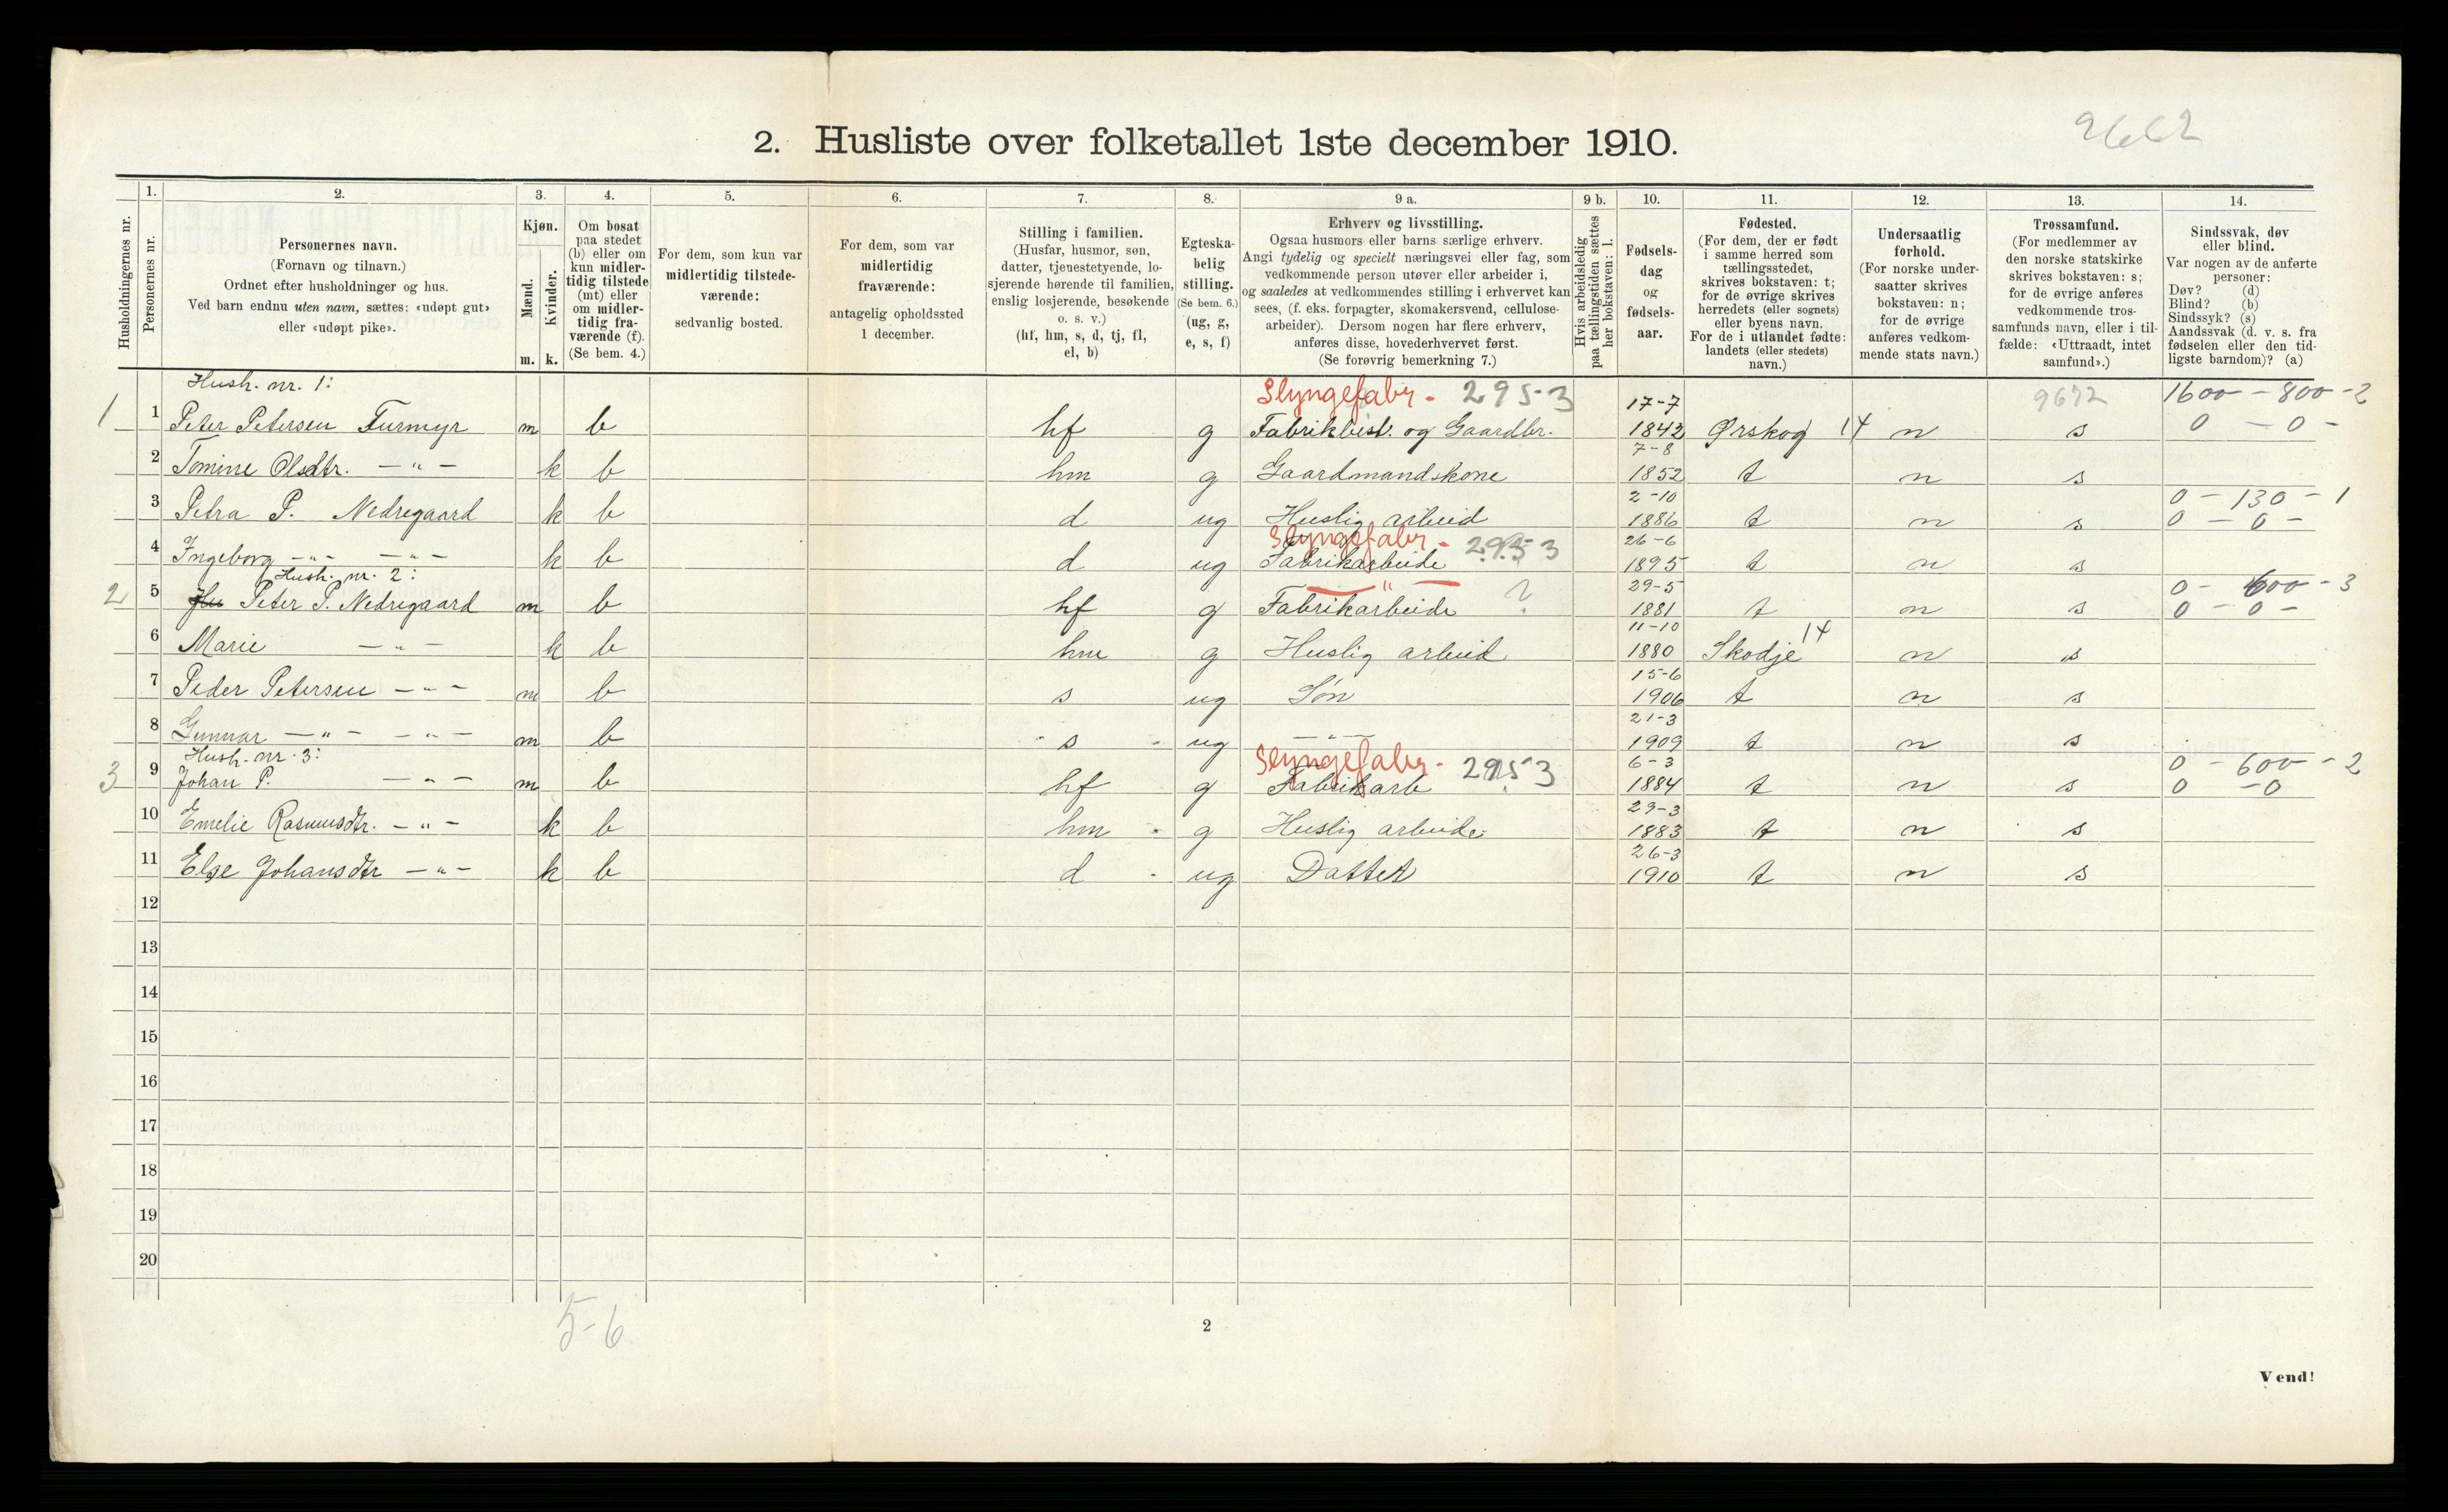 2. Husliste over folketallet 1ste december 1910.
9662
Husholdningernes nr.
1.
Personernes nr.
2.
Personernes navn.
(Fornavn og tilnavn.)
Ordnet efter husholdninger og hus.
Ved barn endnu uten navn, sættes: «udøpt gut»
eller «udøpt pike».
3.
Kjøn.
Mænd.
Kvinder.
m. k.
4.
Om bosat
paa stedet
(b) eller om
kun midler-
tidig tilstede
(mt) eller
om midler-
tidig fra-
værende (f).
(Se bem. 4.)
5.
For dem, som kun var
midlertidig tilstede-
værende:
sedvanlig bosted.
6.
For dem, som var
midlertidig
fraværende:
antagelig opholdssted
1 december.
7.
Stilling i familien.
(Husfar, husmor, søn,
datter, tjenestetyende, lo-
sjerende hørende til familien,
enslig losjerende, besøkende
o. s. v.)
(hf, hm, s, d, tj, fl,
el, b)
8.
Egteska-
belig
stilling.
(Se bem. 6.)
(ug, g,
e, s, f)
9 a.
Erhverv og livsstilling.
Ogsaa husmors eller barns særlige erhverv.
Angi tydelig og specielt næringsvei eller fag, som
vedkommende person utøver eller arbeider i,
og saaledes at vedkommendes stilling i erhvervet kan
sees, (f. eks. forpagter, skomakersvend, cellulose-
arbeider). Dersom nogen har flere erhverv,
anføres disse, hovederhvervet først.
(Se forøvrig bemerkning 7.)
9 b.
Hvis arbeidsledig
paa tællingstiden sættes
her bokstaven: l.
10.
Fødsels-
dag
og
fødsels-
aar.
11.
Fødested.
(For dem, der er født
i samme herred som
tællingsstedet,
skrives bokstaven: t;
for de øvrige skrives
herredets (eller sognets)
eller byens navn.
For de i utlandet fødte:
landets (eller stedets)
navn.)
12.
Undersaatlig
forhold.
(For norske under-
saatter skrives
bokstaven: n;
for de øvrige
anføres vedkom-
mende stats navn.)
13.
Trossamfund.
(For medlemmer av
den norske statskirke
skrives bokstaven: s;
for de øvrige anføres
vedkommende tros-
samfunds navn, eller i til-
fælde: «Uttraadt, intet
samfund».)
14.
Sindssvak, døv
eller blind.
Var nogen av de anførte
personer:
Døv? (d)
Blind? (b)
Sindssyk? (s)
Aandssvak (d. v. s. fra
fødselen eller den tid-
ligste barndom)? (a)
Hush. nr. 1:
Slyngefabr. 295-3 17-7 9672 1600 - 800 - 2
1 1 Peter Petersen Furmyr m b hf g Fabrikbest. og Gaardbr. 1842 Ørskog 14 n s 0 - 0 -
7-8
2 Tomine Olsdtr. - " - k b hm g Gaardmandskone 1852 t n s
2-10 0 - 130 - 1
3 Petra P. Nedregaard k b d ug Huslig arbeid 1886 t n s 0 - 0 -
Slyngefabr. 295 3 26-6
4 Ingeborg - " - - " - k b d ug Fabrikarbeide 1895 t n s
Hush. nr. 2:
" 29-5 0 - 600 - 3
2 5 Peter P. Nedregaard m b hf g Fabrikarbeide ? 1881 t n s 0 - 0 -
11-10
6 Marie - " - k b hm g Huslig arbeid 1880 Skodje 14 n s
15-6
7 Peder Petersen - " - m b s ug Søn 1906 t n s
21-3
8 Gunnar - " - - " - m b s ug - " - 1909 t n s
Hush. nr. 3:
Slyngefabr. 295 3 6-3 0 - 600 - 2
3 9 Johan P. - " - m b hf g Fabrikarb 1884 t n s 0 - 0
29-3
10 Emelie Rasmusdtr. - " - k b hm g Huslig arbeide 1883 t n s
26-3
11 Else Johansdtr - " - k b d ug Datter 1910 t n s
12
13
14
15
16
17
18
19
20
5-6
2
Vend!